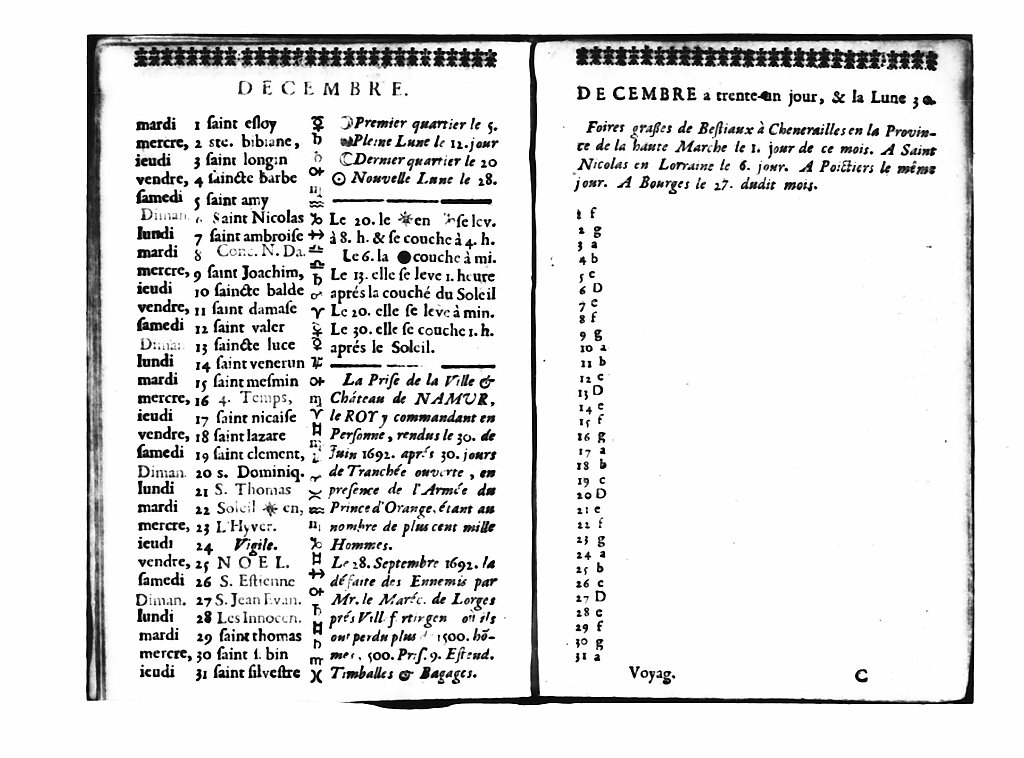 DECEMBRE.
mardi 1 ſaint eſloy
mercre, 2 ste. bibiane,
jeudi 3 ſaint longin
vendre, 4 ſaincte barbe
ſamedi 5 ſaint amy
Diman. 6 Saint Nicolas
lundi 7 ſaint ambroiſe
mardi 8 Conc. N. Da.
mercre, 9 ſaint Joachim,
ieudi 10 ſaincte balde
vendre, 11 ſaint damaſe
ſamedi 12 ſaint valer
Diman. 13 ſaincte luce
lundi 14 ſaint venerun
mardi 15 ſaint meſmin
mercre, 16 4. Temps,
ieudi 17 ſaint nicaiſe
vendre, 18 ſaint lazare
ſamedi 19 ſaint clement,
Diman. 20 s. Dominiq.
lundi 21 S. Thomas
mardi 22 Soleil en,
mercre, 23 L'Hyver.
ieudi 24 Vigile.
vendre, 25 NOEL.
ſamedi 26 S. Eſtienne
Diman. 27 S. Jean Evan.
lundi 28 Les Innocen.
mardi 29 ſaint thomas
mercre, 30 ſaint ſ. bin
ieudi 31 ſaint ſilveſtre
☽ Premier quartier le 5.
Pleine Lune le 12. jour
☾ Dernier quartier le 20
☉ Nouvelle Lune le 28.
Le 20. le ☀ en ſe lev.
à 8. h. & ſe couche à 4. h.
Le 6. la ● couche à mi.
Le 13. elle ſe leve 1. heure
aprés la couché du Soleil
Le 20. elle ſe leve à min.
Le 30. elle ſe couche 1. h.
aprés le Soleil.
La Priſe de la Ville &
Château de NAMUR,
le ROY y commandant en
Perſonne, rendus le 30. de
Juin 1692. aprés 30. jours
de Tranchée ouverte, en
preſence de l'Armée du
Prince d'Orange, étant au
nombre de plus cent mille
Hommes.
Le 28. Septembre 1692. la
défaite des Ennemis par
Mr. le Maréc. de Lorges
prés où ils
ont perdu plus 1500. hõ-
mes, 500. Priſ. 9. Eſtend.
Timballes & Bagages.
DECEMBRE a trente-un jour, & la Lune 30.
Foires graſſes de Beſtiaux à Chenerailles en la Provin-
ce de la haute Marche le 1. jour de ce mois. A Saint
Nicolas en Lorraine le 6. jour. A Poictiers le même
jour. A Bourges le 27. dudit mois.
1 f
2 g
3 a
4 b
5 c
6 D
7 e
8 f
9 g
10 a
11 b
12 c
13 D
14 e
15 f
16 g
17 a
18 b
19 c
20 D
21 e
22 f
23 g
24 a
25 b
26 c
27 D
28 e
29 f
30 g
31 a
Voyag. C